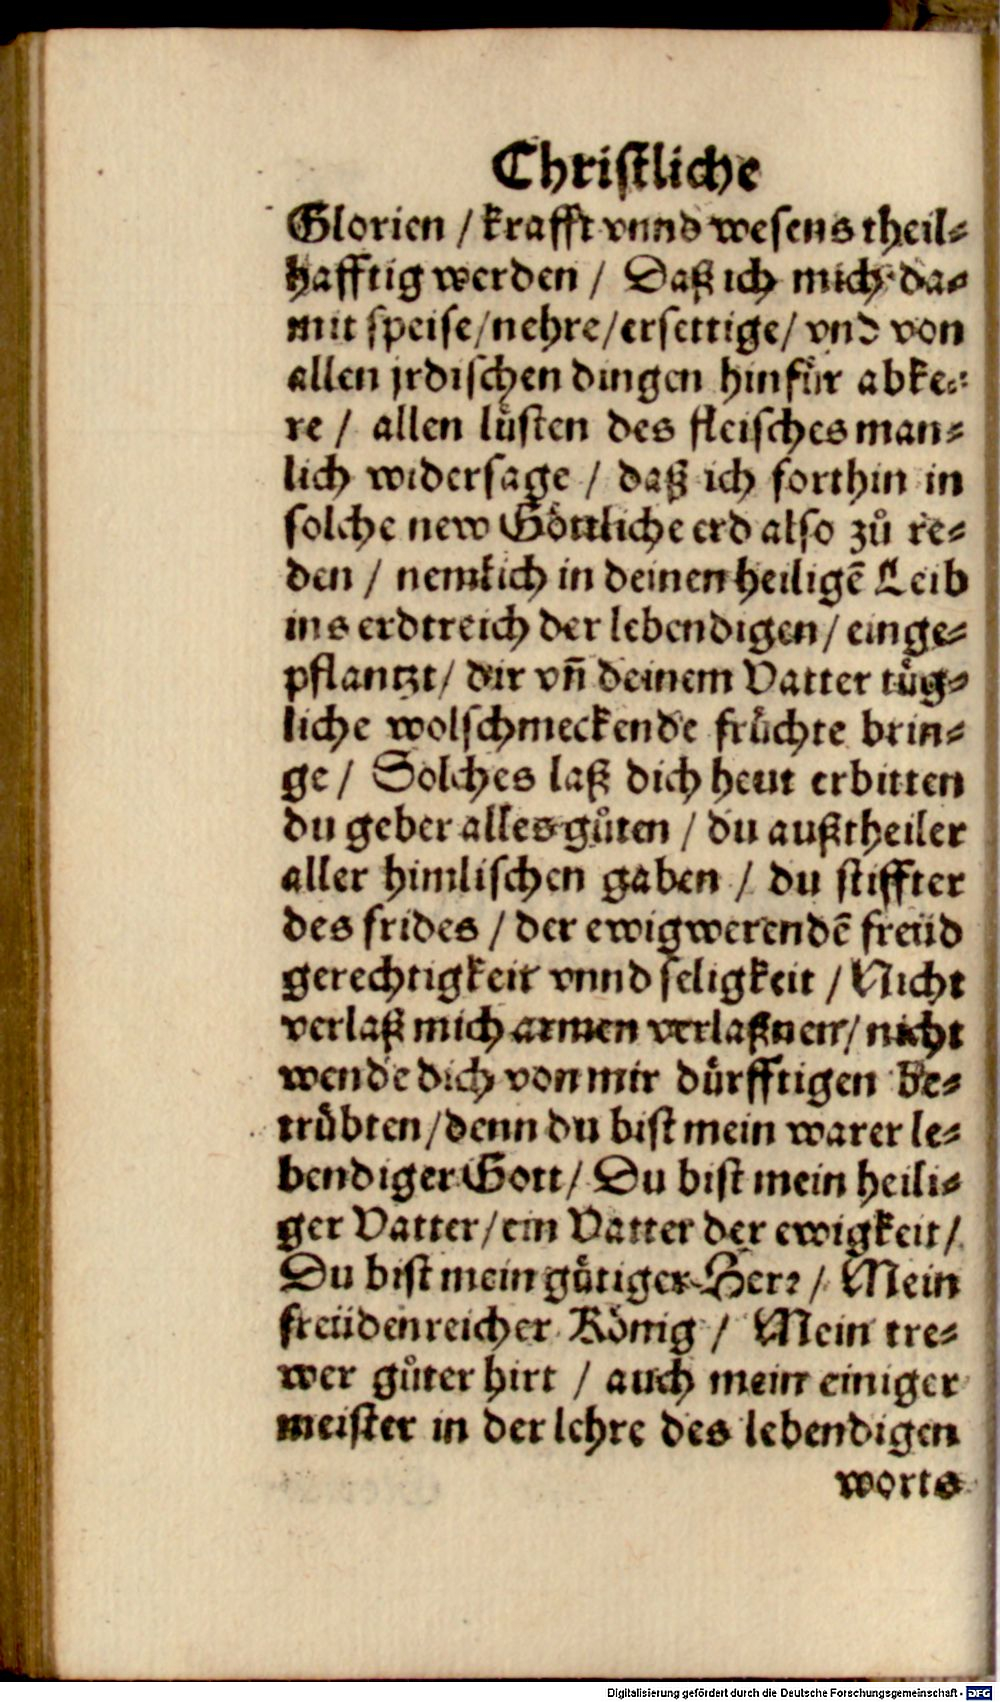 Christliche
Glorien / krafft vnnd wesens theil-
hafftig werden / Daß ich mich da-
mit speise/nehre/ersettige/ vnd von
allen jrdischen dingen hinfür abke-
re / allen lüsten des fleisches man-
lich widersage / daß ich forthin in
solche new Göttliche erd also zů re-
den / nemlich in deinen heiligē Leib
ins erdtreich der lebendigen/ einge-
pflantzt/ dir vñ deinem Vatter tüg-
liche wolschmeckende früchte brin-
ge / Solches laß dich heut erbitten
du geber alles gůten / du außtheiler
aller himlischen gaben / du stiffter
des frides / der ewigwerendē freüd
gerechtigkeit vnnd seligkeit / Nicht
verlaß mich armen verlaßnen/ nicht
wende dich von mir dürfftigen be-
trübten/denn du bist mein warer le-
bendiger Gott/ Du bist mein heili-
ger Vatter/ein Vatter der ewigkeit/
Du bist mein gütiger Herr / Mein
freüdenreicher König / Mein tre-
wer gůter hirt / auch mein einiger
meister in der lehre des lebendigen
worts
Digitalisierung gefördert durch die Deutsche Forschungsgemeinschaft - DFG